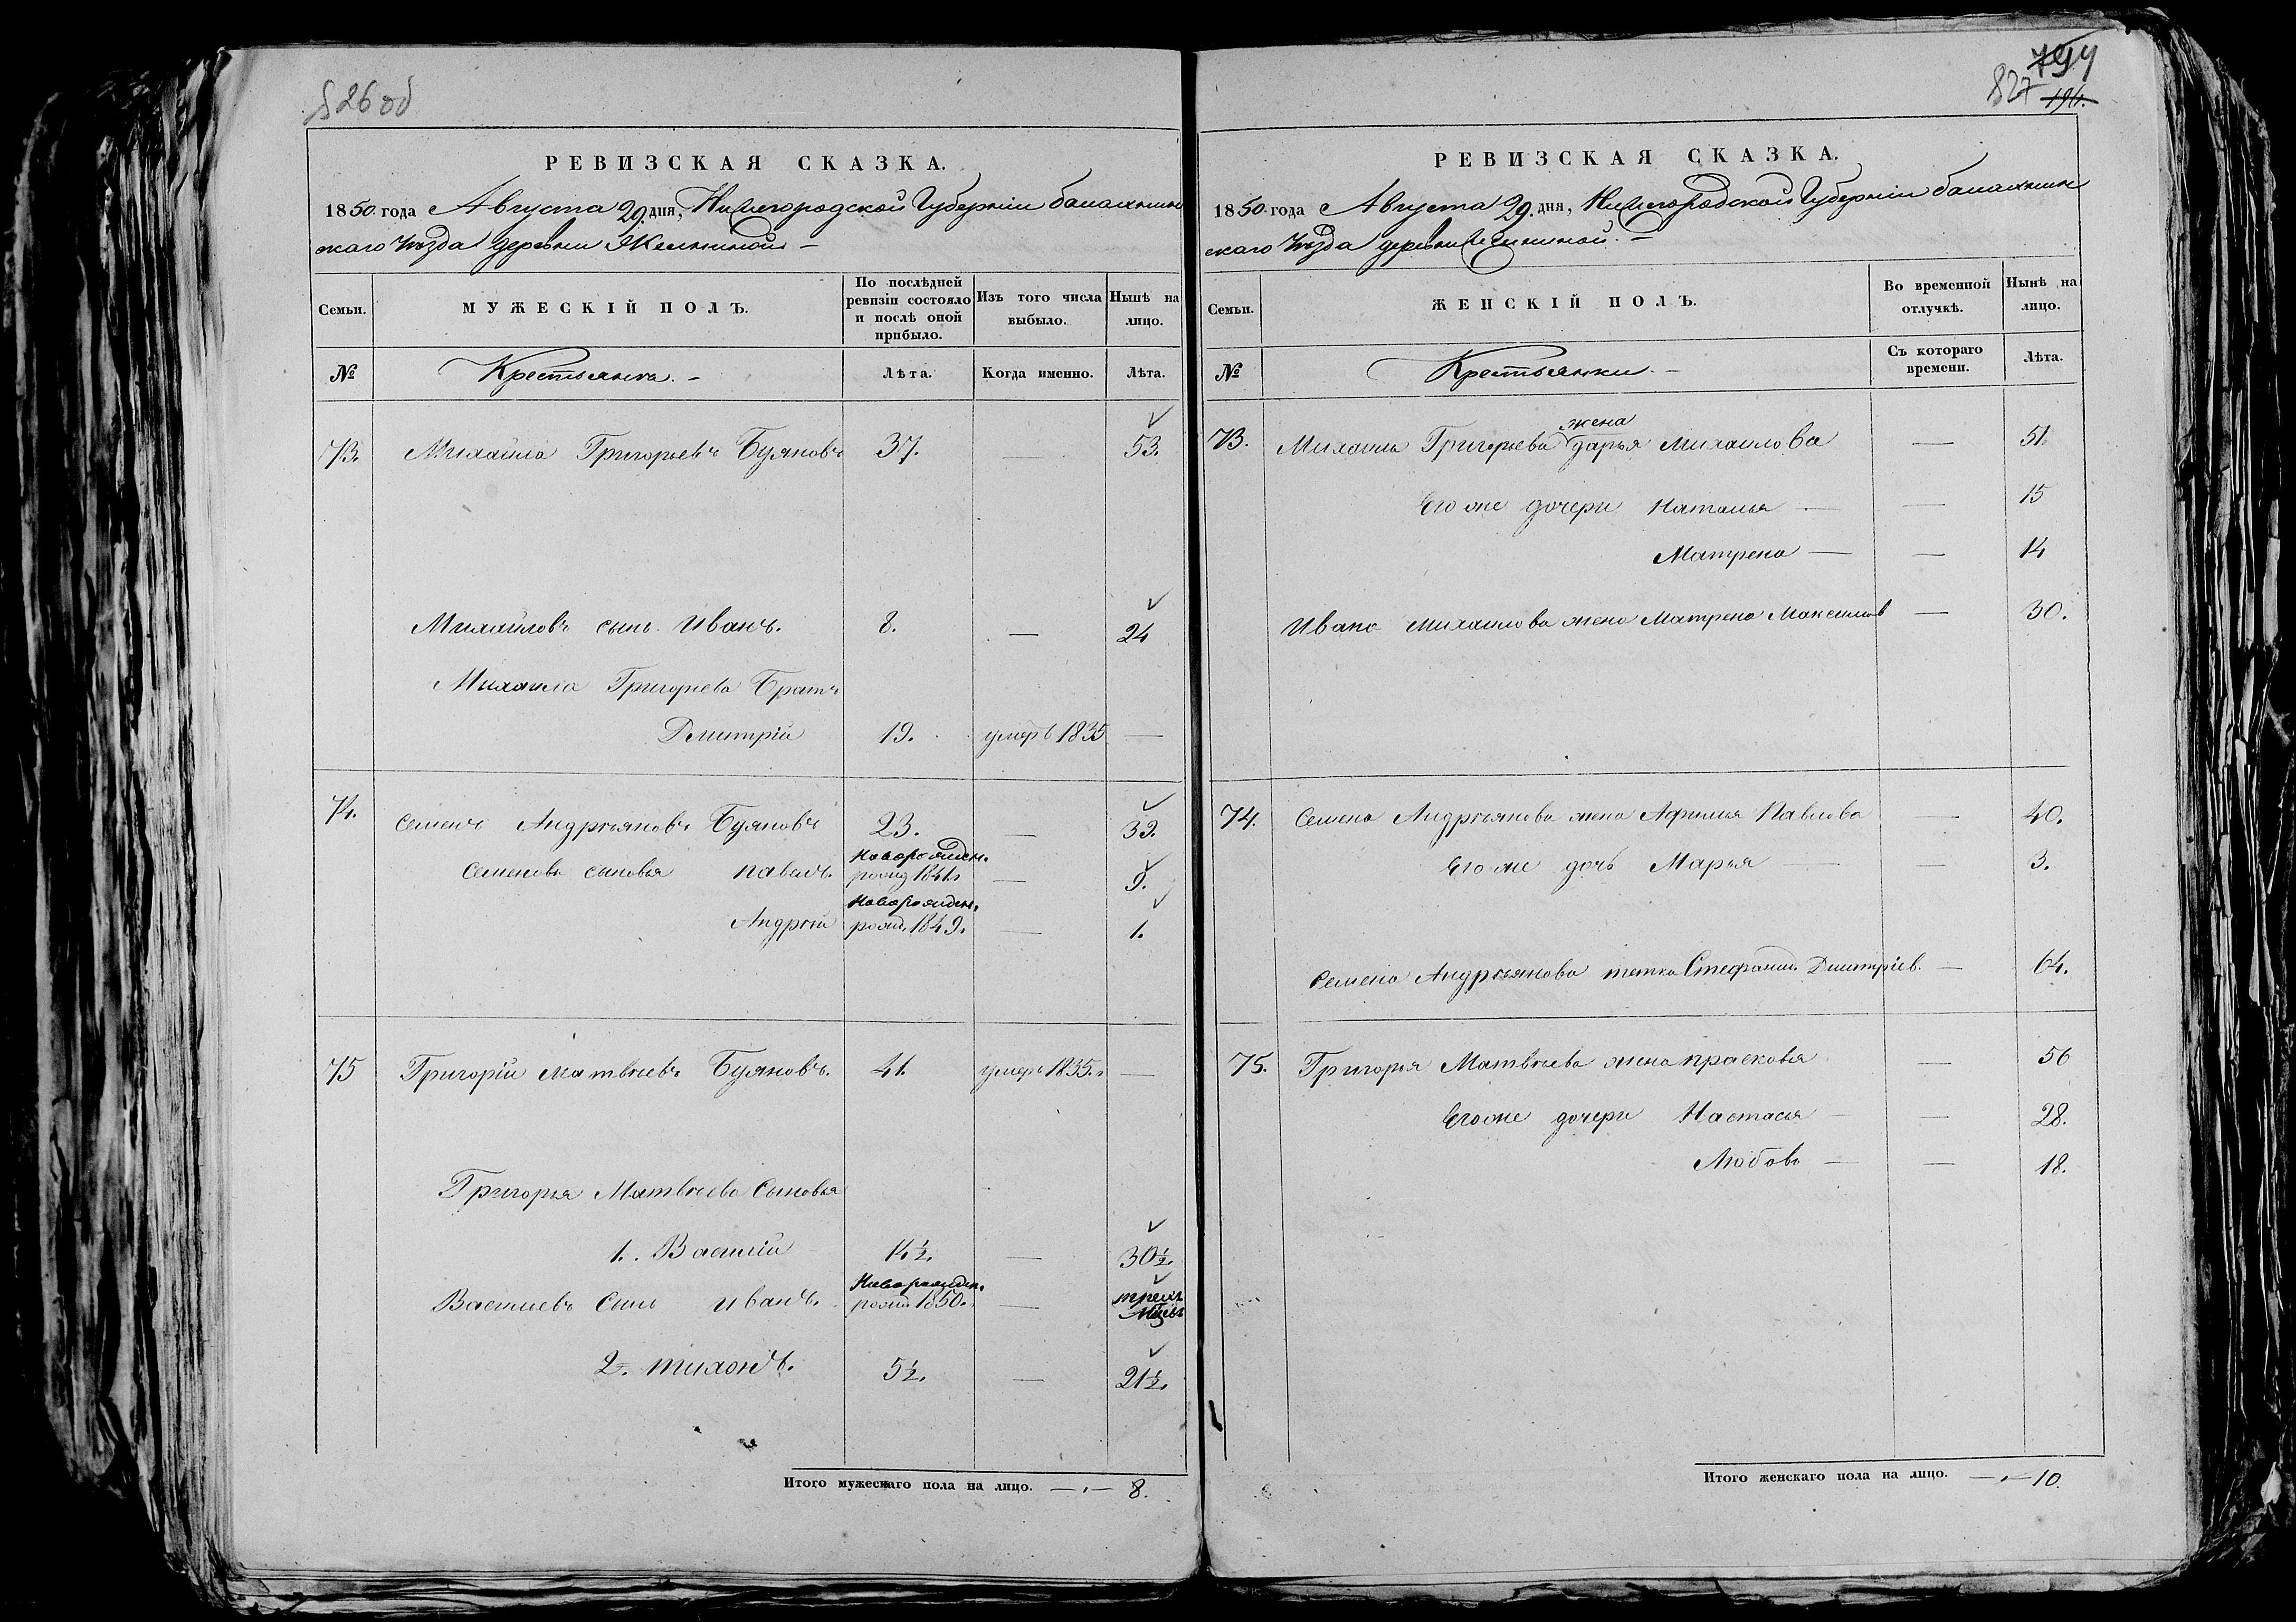 826 об
РЕВИЗСКАЯ СКАЗКА.
1850. года Августа 29. дня, Нижегородской Губерніи балахнин
скаго Уѣзда деревни
Семьи.
МУЖЕСКІЙ ПОЛЪ.
По послѣдней ревизіи состояло и послѣ оной прибыло.
Изъ того числа выбыло.
Нынѣ на лицо.
№
Крестьянка. -
Лѣта.
Когда именно.
Лѣта.
73. Михайла Григорьевъ Буяновъ 37. — 53.
Михайловъ сынъ Иванъ. 8. — 24
Михаила Григорьева Братъ
Дмитрій 19. умеръ 1835 —
74. Семенъ Андреяновъ Буяновъ 23. — 39.
Семеновы сыновья Павелъ. Новорожден. рожд 1841. — 9.
Андрей Новорожден. рожд. 1849. — 1.
75 Григорій Матвѣевъ Буяновъ. 41. умеръ 1835. —
Григорья Матвѣева Сыновья
1. Василій 14½. — 30½.
Васильевъ Сынъ Иванъ. Новорожден. рожд 1850. — трехъ Мѣсец
2. тихонъ. 5½. — 21½.
Итого мужескаго пола на лицо. — 8.
794
827 196.
РЕВИЗСКАЯ СКАЗКА.
1850. года Августа 29. дня, Нижегородской Губерніи балахнин
скаго Уѣзда деревни
Семьи.
ЖЕНСКІЙ ПОЛЪ.
Во временной отлучкѣ.
Нынѣ на лицо.
№
Крестьянки. -
Съ котораго времени.
Лѣта.
73. Михаила Григорьева жена дарья Михаилова — 51.
Его же дочери Наталья — — 15
Матрена — — 14
Ивана Михаилова жена Матрена Максимов — 30.
74. Семена Андреянова жена Афимья Павлова — 40.
Его же дочь Марья — — 3.
Семена Андреянова тетка Стефанид. Дмитріев. — 64.
75. Григорья Матвѣева жена прасковья — 56
Его же дочери Настасья — — 28.
Любовь — — 18.
Итого женскаго пола на лицо. — 10.